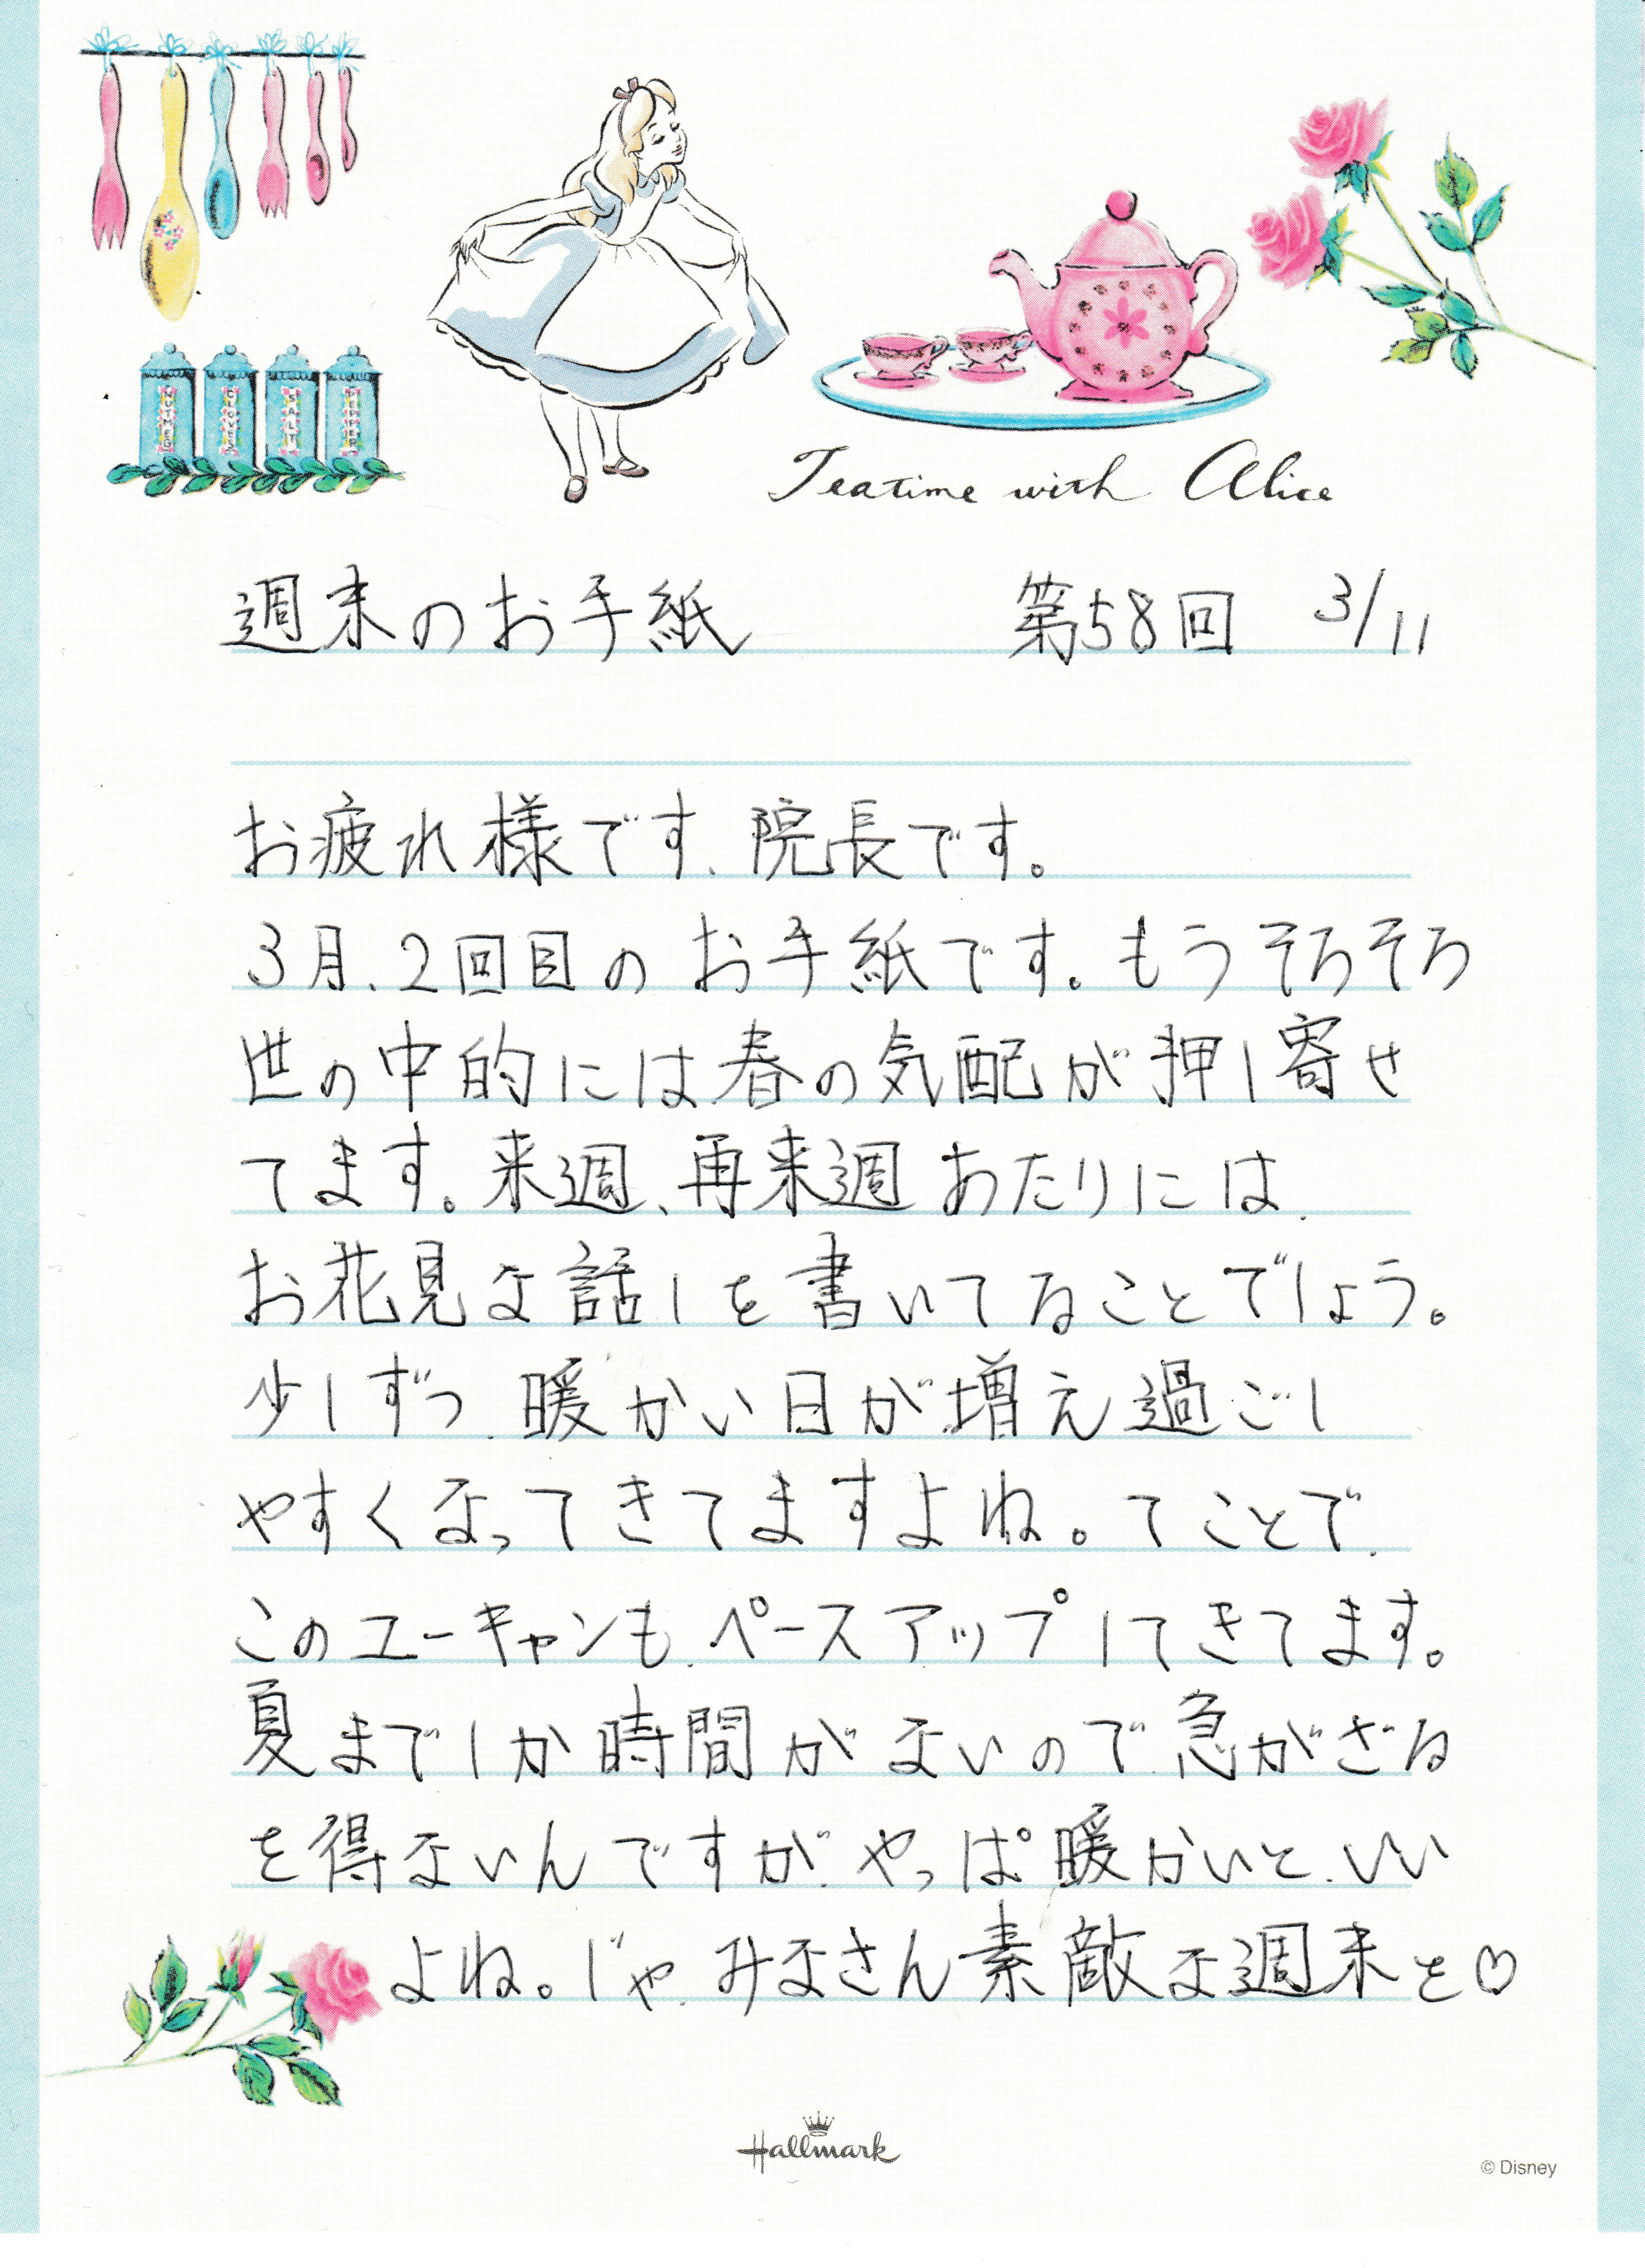 NUTMEG CLOVES SALT PEPPER
Teatime with Alice
週末のお手紙 第58回 3/11
お疲れ様です、院長です。
3月、2回目のお手紙です。もうそろそろ
世の中的には、春の気配が押し寄せ
てます。来週、再来週あたりには、
お花見な話しを書いてることでしょう。
少しずつ、暖かい日が増え過ごし
やすくなってきてますよね。てことで、
このユーキャンも、ペースアップしてきてます。
夏までしか時間がないので、急がざる
を得ないんですが、やっぱ暖かいと、いい
よね。じゃ、みなさん素敵な週末を♡
Hallmark
© Disney